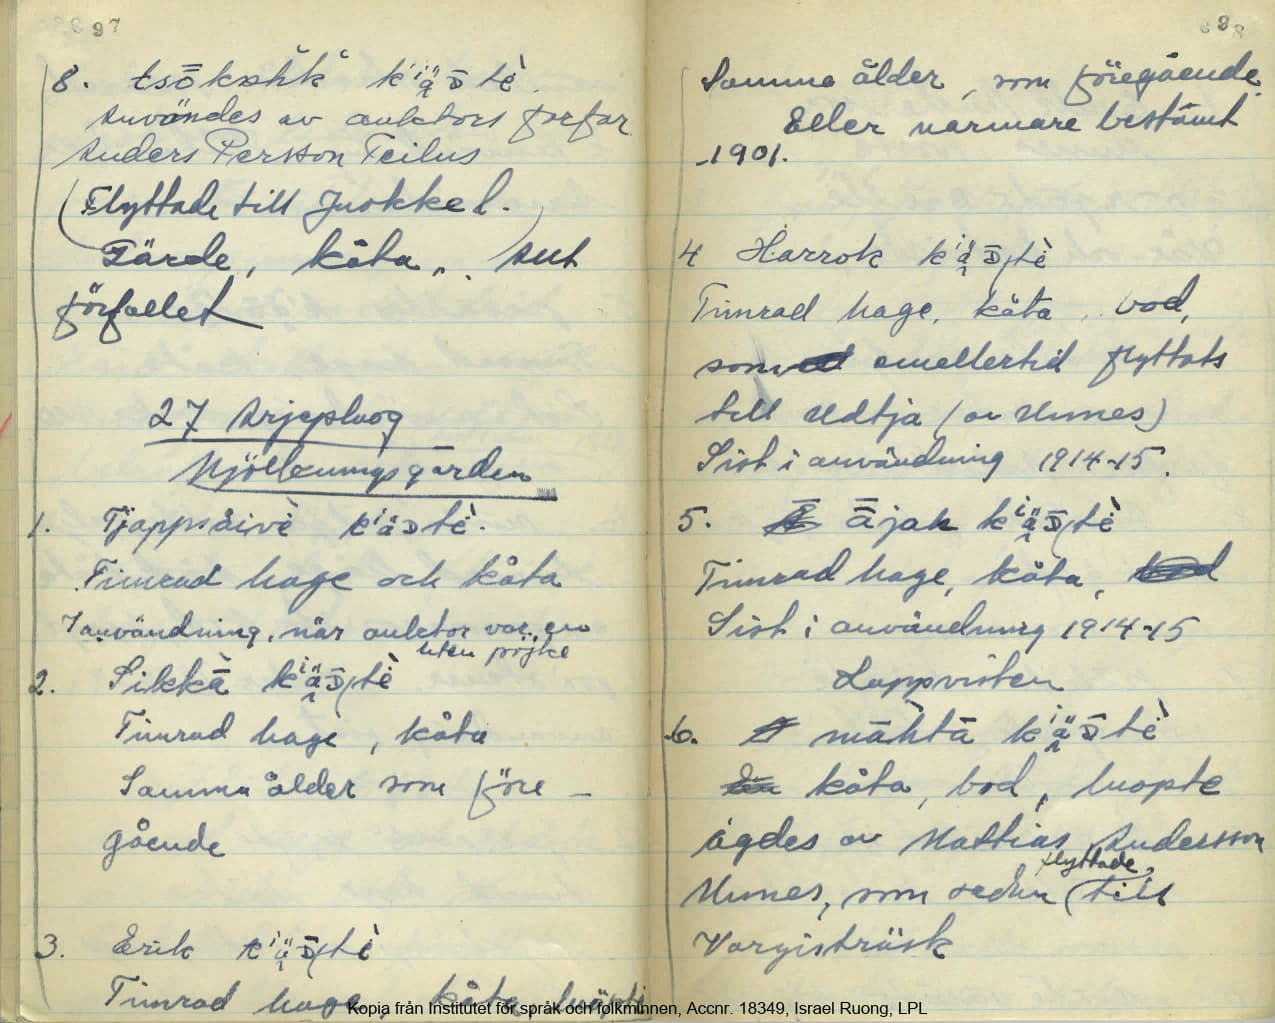 97
8. tsō̄kǝhk kⁱäᴅ̄tè.
Användes av auktors farfar
Anders Persson Feilus
(Flyttade till Juokkel.)
Gärde, kåta, . Allt
förfallet
27 Arjepluog
Mjölkningsgärden
1. Tjappsåivè kⁱäᴅtè.
Timrad hage och kåta
I användning, när auktor var en
liten pojke
2. Sikkā kⁱäᴅ̄tè
Timrad hage, kåta
Samma ålder som före-
gående
3. Erik kⁱäᴅ̄tè
Timrad hage, kåta, luopte
98
Samma ålder, som föregående.
Eller närmare bestämt
-1901.
4 Harrok kⁱäᴅ̄tè
Timrad hage, kåta, bod,
som emellertid flyttats
till Udtja (av Nunes)
Sist i användning 1914-15.
5. ājah kⁱäᴅ̄tè
Timrad hage, kåta,
Sist i användning 1914-15
Lappvisten
6. māhtā kⁱäᴅ̄tè
kåta, bod, luopte
ägdes av Mattias Andersson
Nunes, som sedan flyttade till
Vargisträsk
Kopia från Institutet för språk och folkminnen, Accnr. 18349, Israel Ruong, LPL